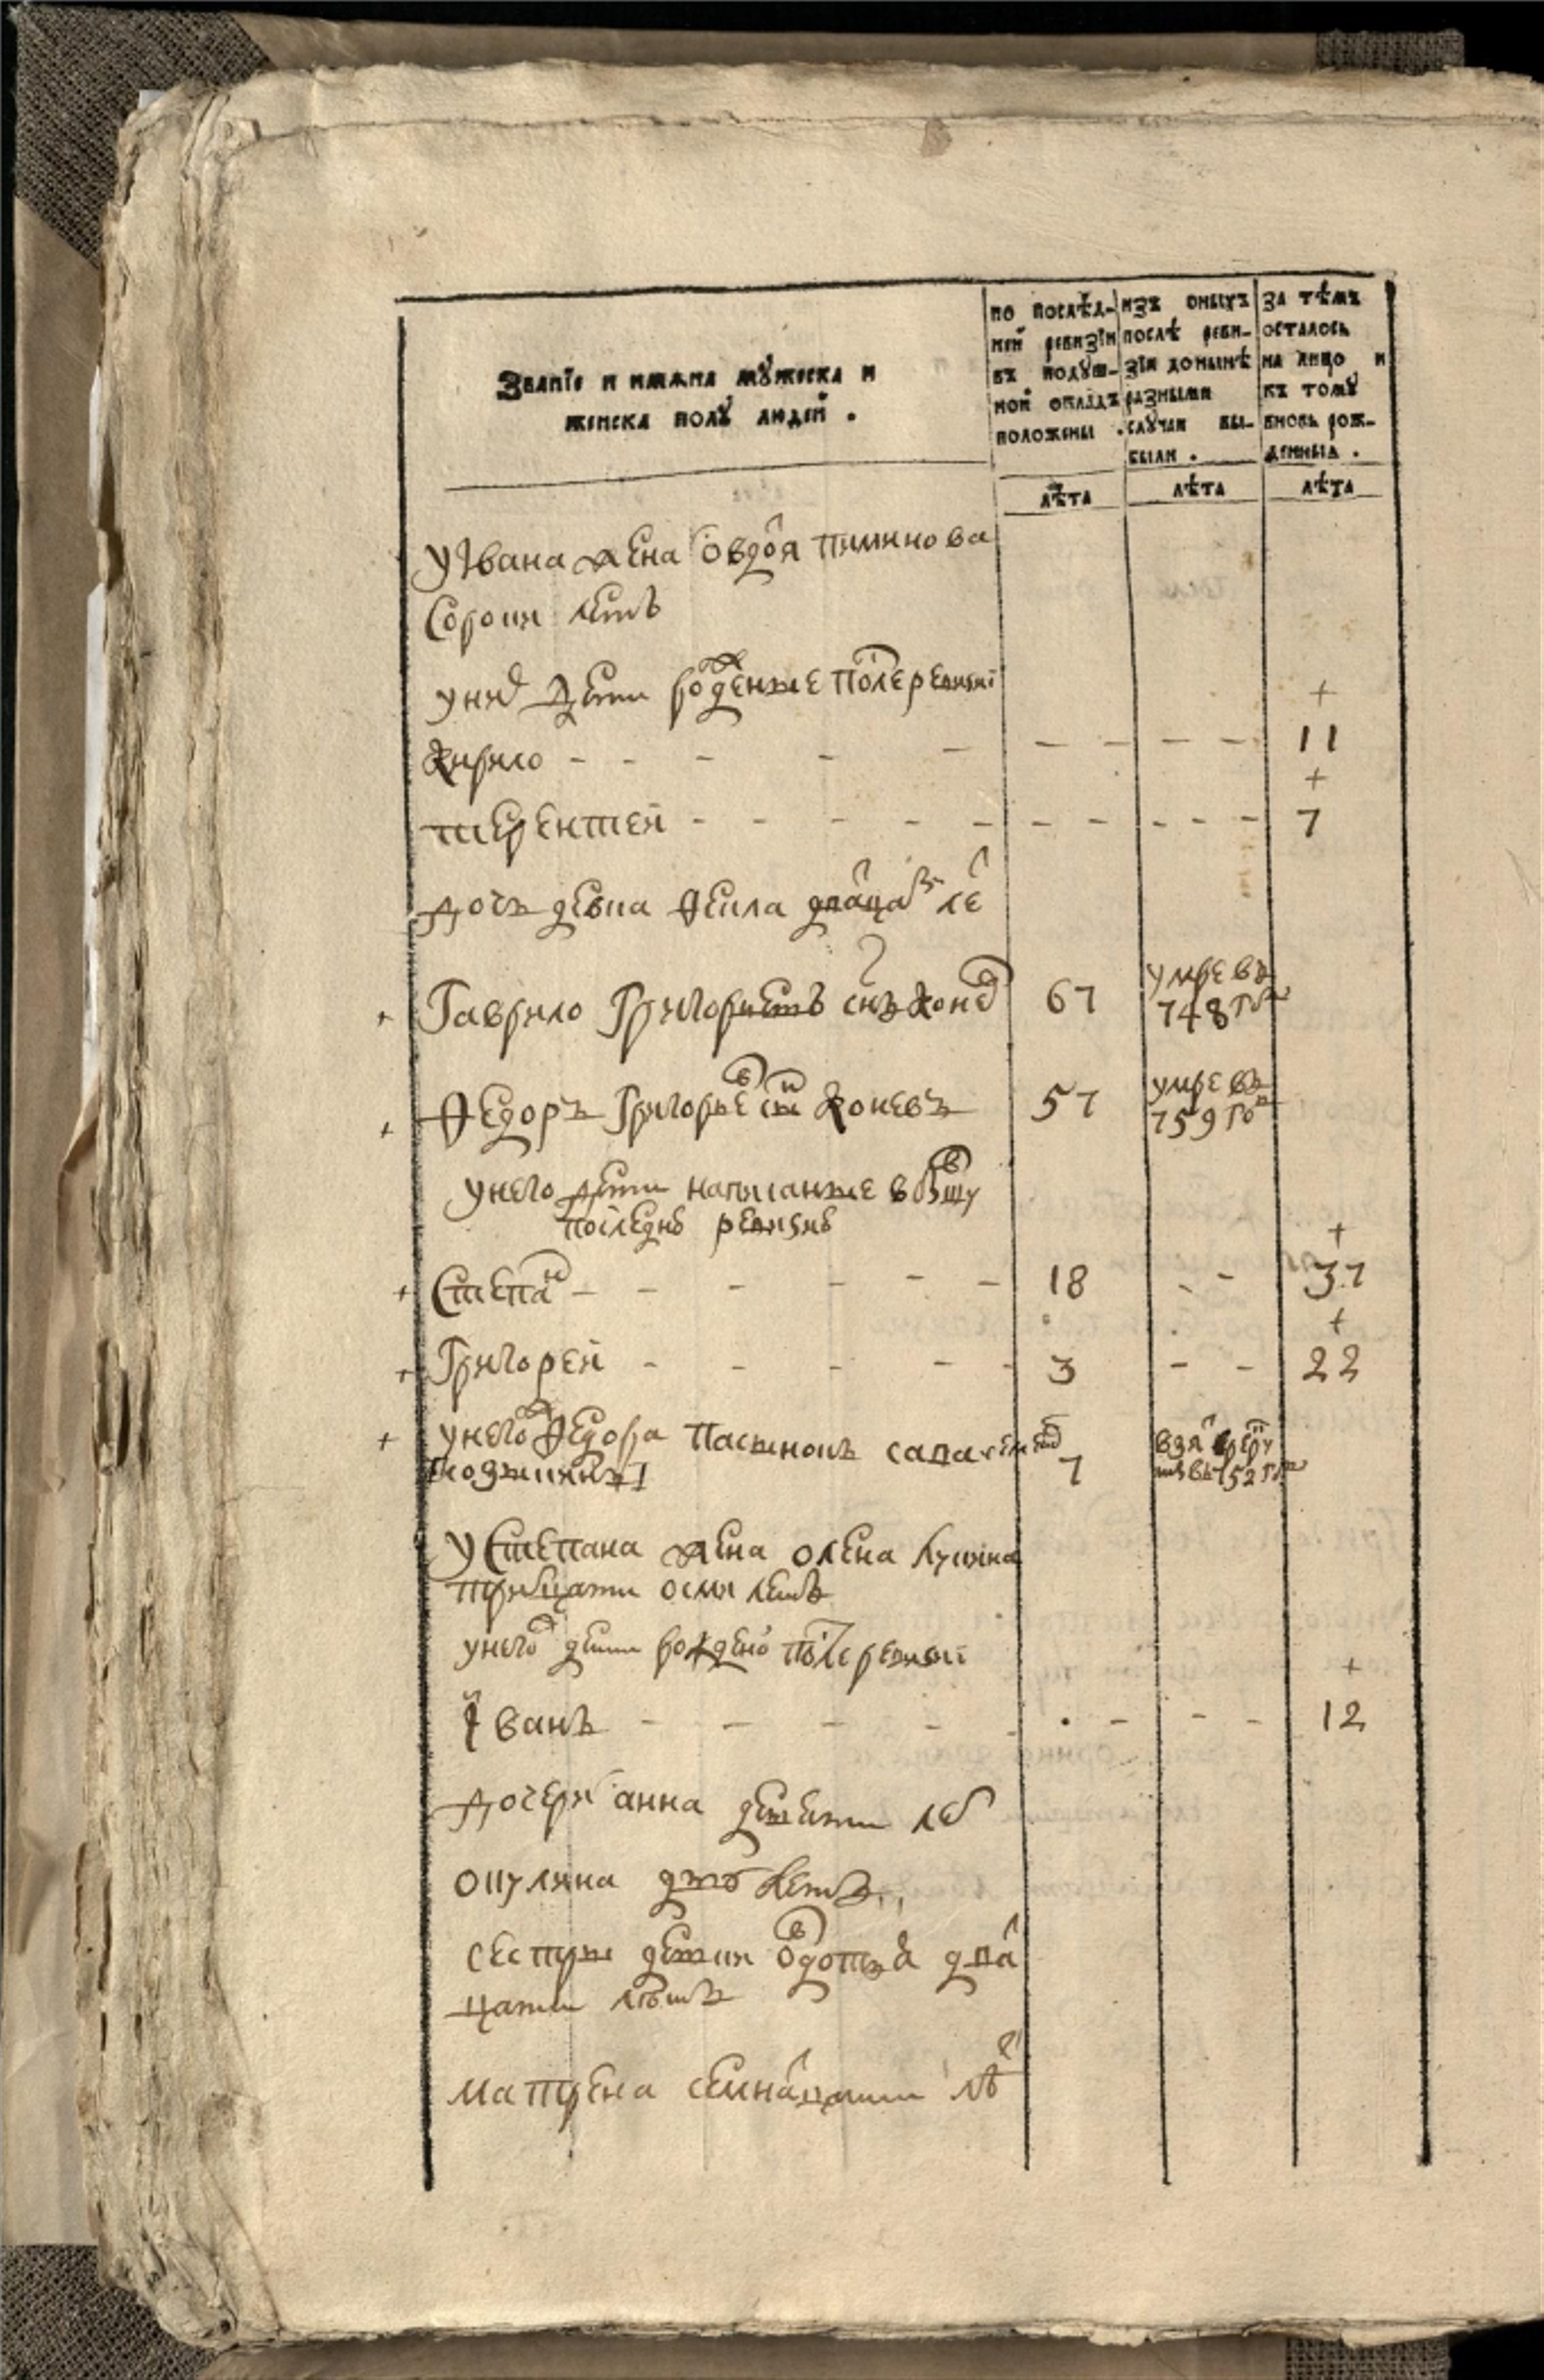 Званїе и имѧна мꙋжеска и
женска полꙋ людей .
по послѣд-
ней ревизїи
въ подуш-
ной окладъ
положены .
изъ оныхъ
послѣ реви-
зїи донынѣ
разными
случаи вы-
были .
за тѣмъ
осталось
на лицо и
къ томꙋ
вновь рож-
денныѧ .
лѣта
лѣта
лѣта
у Ивана жена овдоя пиминова
сорока летъ
у них дети рожденые после ревизиі
+
Кирило - - - - - - - - - 11
+
терентей - - - - - - - - - - 7
дочь девка Фекла дватцати лет
+ Гаврило Григорьевъ снъ Конев 67 умре въ
748 году
+ Федоръ Григорьев снъ Коневъ 57 умре въ
759 году
у него дети написанные в бывшу
последнею ревизию
+
+ Степан - - - - - 18 - - 37
+
+ Григорей - - - - - 3 - - 22
+ у него Федора пасынокъ
7
взят в рекру
ты въ 752 году
у Степана жена олена лукина
тритцати осми летъ
у него дети рождено после ревизиі
+
Иванъ - - - - - . - - - 12
дочери анна девети лет
окулина дву летъ
сестры девки овдотья дват
цати летъ
матрена семнатцати лет